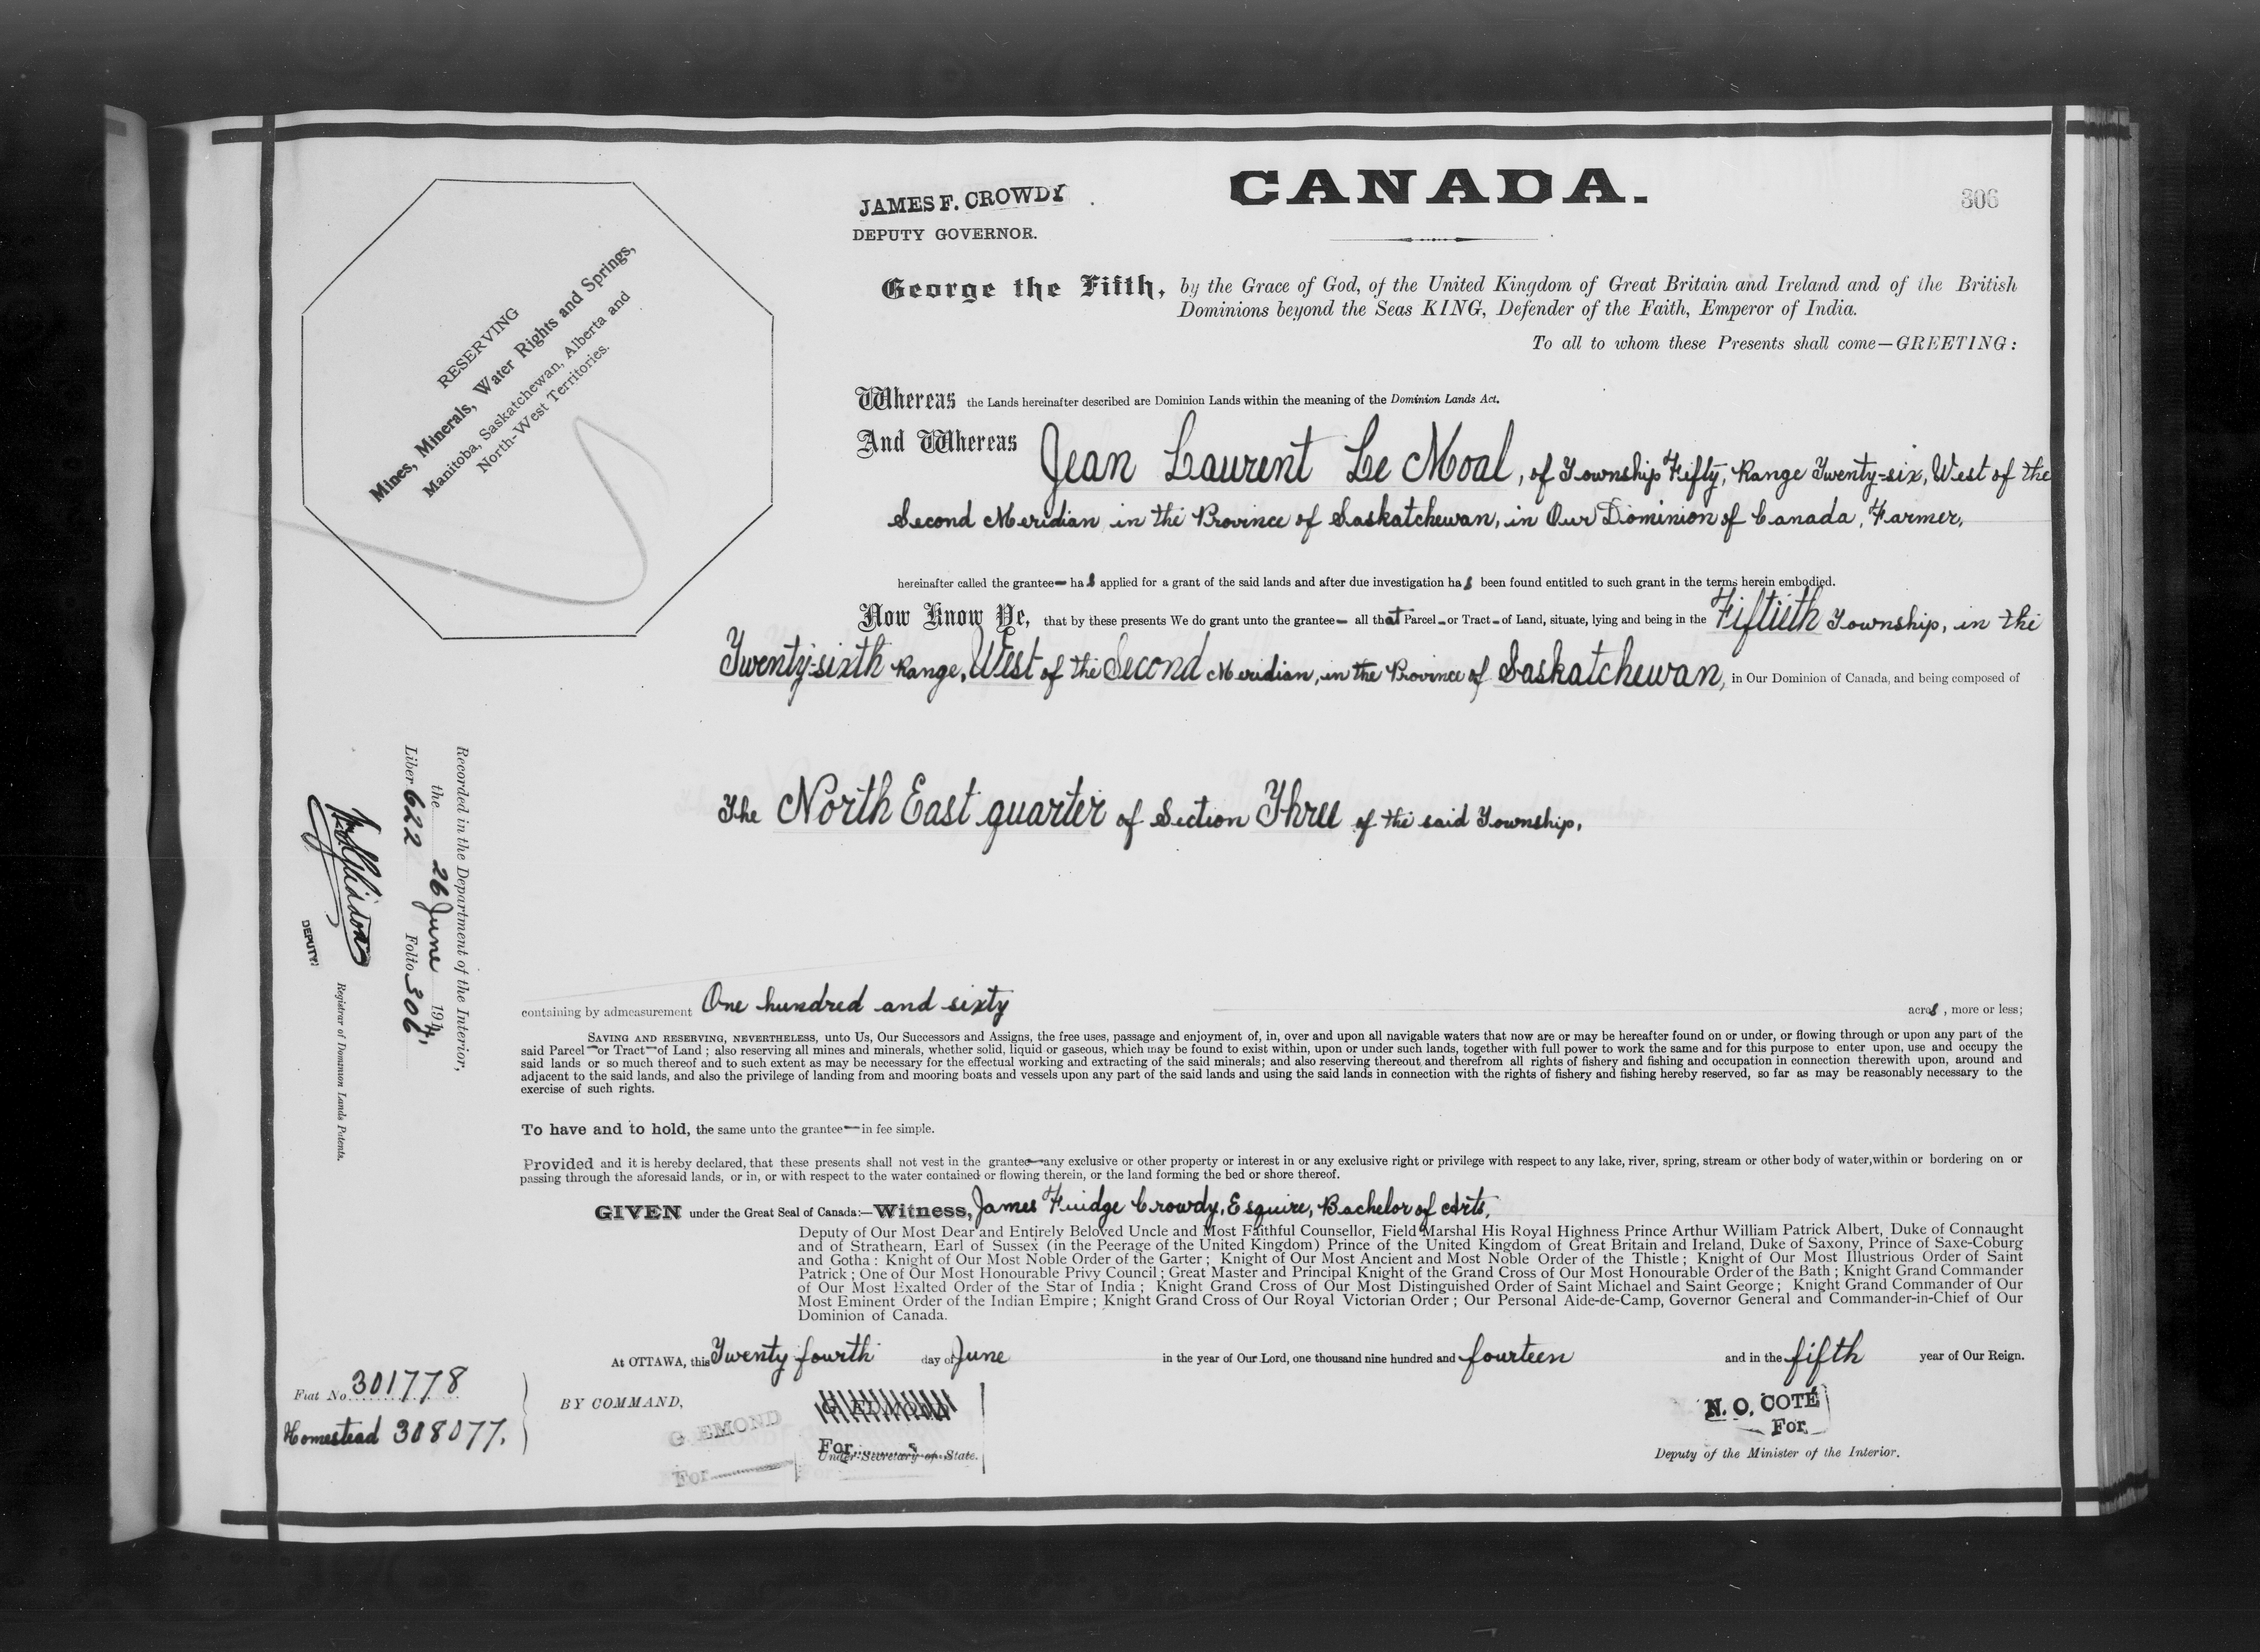 CANADA.
306
JAMES F. CROWDY
DEPUTY GOVERNOR.
RESERVING
Mines, Minerals, Water Rights and Springs,
Manitoba, Saskatchewan, Alberta and
North-West Territories.
George the Fifth, by the Grace of God, of the United Kingdom of Great Britain and Ireland and of the British
Dominions beyond the Seas KING, Defender of the Faith, Emperor of India.
To all to whom these Presents shall come—GREETING:
Whereas the Lands hereinafter described are Dominion Lands within the meaning of the Dominion Lands Act.
And Whereas Jean Laurent Le Moal, of Township Fifty, Range Twenty-six, West of the
Second Meridian, in the Province of Saskatchewan, in Our Dominion of Canada, Farmer,
hereinafter called the grantee— has applied for a grant of the said lands and after due investigation has been found entitled to such grant in the terms herein embodied.
Now Know Ye, that by these presents We do grant unto the grantee— all that Parcel—or Tract—of Land, situate, lying and being in the Fiftieth Township, in the
Twenty-sixth Range, West of the Second Meridian, in the Province of Saskatchewan, in Our Dominion of Canada, and being composed of
The North East quarter of Section Three of the said Township,
containing by admeasurement One hundred and sixty acres, more or less;
SAVING AND RESERVING, NEVERTHELESS, unto Us, Our Successors and Assigns, the free uses, passage and enjoyment of, in, over and upon all navigable waters that now are or may be hereafter found on or under, or flowing through or upon any part of the
said Parcel—or Tract—of Land; also reserving all mines and minerals, whether solid, liquid or gaseous, which may be found to exist within, upon or under such lands, together with full power to work the same and for this purpose to enter upon, use and occupy the
said lands or so much thereof and to such extent as may be necessary for the effectual working and extracting of the said minerals; and also reserving thereout and therefrom all rights of fishery and fishing and occupation in connection therewith upon, around and
adjacent to the said lands, and also the privilege of landing from and mooring boats and vessels upon any part of the said lands and using the said lands in connection with the rights of fishery and fishing hereby reserved, so far as may be reasonably necessary to the
exercise of such rights.
To have and to hold, the same unto the grantee—in fee simple.
Provided and it is hereby declared, that these presents shall not vest in the grantee—any exclusive or other property or interest in or any exclusive right or privilege with respect to any lake, river, spring, stream or other body of water, within or bordering on or
passing through the aforesaid lands, or in, or with respect to the water contained or flowing therein, or the land forming the bed or shore thereof.
GIVEN under the Great Seal of Canada:—Witness, James Fuidge Crowdy, Esquire, Bachelor of Arts,
Deputy of Our Most Dear and Entirely Beloved Uncle and Most Faithful Counsellor, Field Marshal His Royal Highness Prince Arthur William Patrick Albert, Duke of Connaught
and of Strathearn, Earl of Sussex (in the Peerage of the United Kingdom) Prince of the United Kingdom of Great Britain and Ireland, Duke of Saxony, Prince of Saxe-Coburg
and Gotha: Knight of Our Most Noble Order of the Garter; Knight of Our Most Ancient and Most Noble Order of the Thistle; Knight of Our Most Illustrious Order of Saint
Patrick; One of Our Most Honourable Privy Council; Great Master and Principal Knight of the Grand Cross of Our Most Honourable Order of the Bath; Knight Grand Commander
of Our Most Exalted Order of the Star of India; Knight Grand Cross of Our Most Distinguished Order of Saint Michael and Saint George; Knight Grand Commander of Our
Most Eminent Order of the Indian Empire; Knight Grand Cross of Our Royal Victorian Order; Our Personal Aide-de-Camp, Governor General and Commander-in-Chief of Our
Dominion of Canada.
At OTTAWA, this Twenty fourth day of June in the year of Our Lord, one thousand nine hundred and fourteen and in the fifth year of Our Reign.
BY COMMAND,
G EMOND
For
G EDMOND
For
Under-Secretary of State.
N. O. COTÉ
For
Deputy of the Minister of the Interior.
Fiat No. 301778
Homestead 308077.
Recorded in the Department of the Interior,
the 26 June 1914,
Liber 622 Folio 306
DEPUTY
Registrar of Dominion Lands Patents.